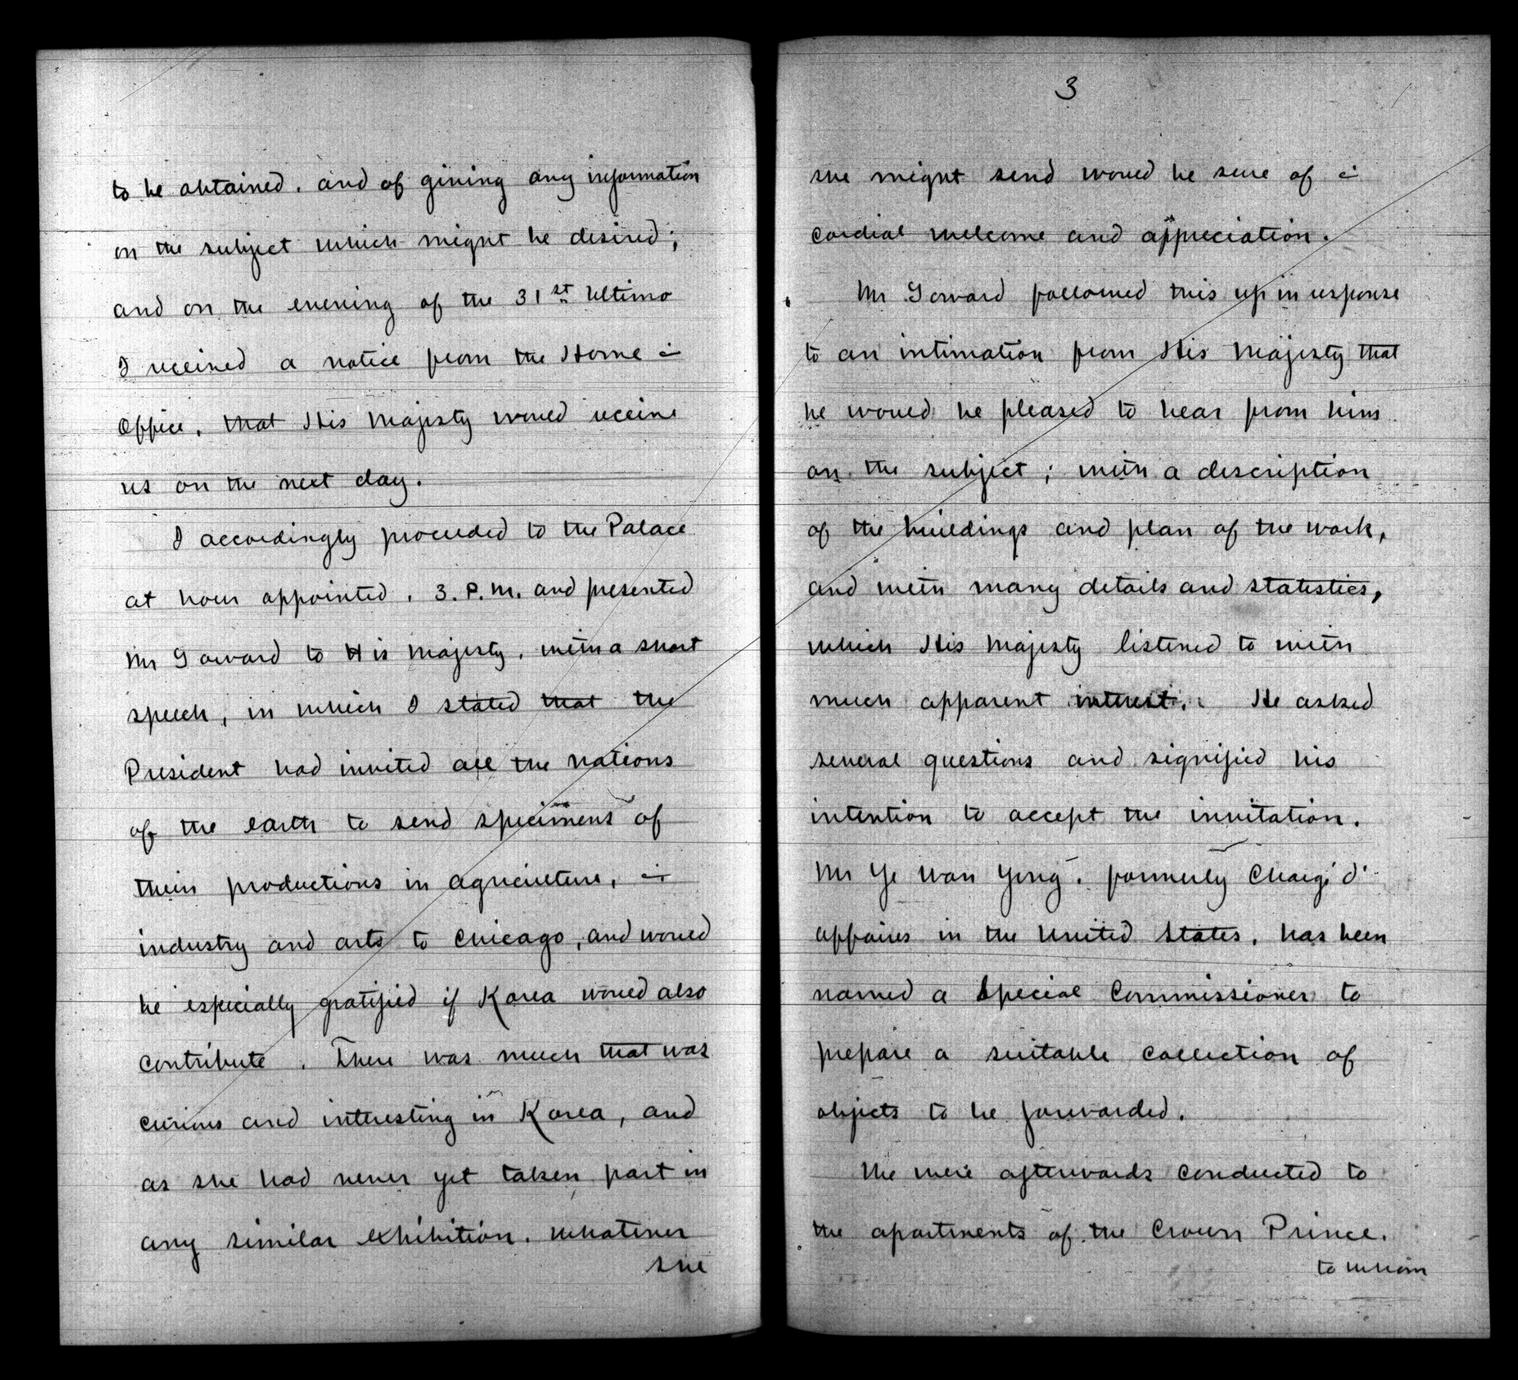 to be obtained, and of giving any information
on the subject which might be desired;
and on the evening of the 31st Ultimo
I received a notice from the Home -
Office, that His Majesty would receive
us on the next day.
I accordingly proceeded to the Palace
at hour appointed, 3. P.M. and presented
Mr Goward to His Majesty, with a short
speech, in which I stated that the
President had invited all the nations
of the earth to send specimens of
their productions in agriculture, -
industry and arts to Chicago, and would
be especially gratified if Korea would also
contribute. There was much that was
curious and interesting in Korea, and
as she had never yet taken part in
any similar exhibition, whatever
she
3
she might send would be sure of a
cordial welcome and appreciation.
Mr Goward followed this up in response
to an intimation from His Majesty that
he would be pleased to hear from him
on the subject; with a description
of the buildings and plan of the work,
and with many details and statistics,
which His Majesty listened to with
much apparent interest. He asked
several questions and signified his
intention to accept the invitation.
Mr Ye Wan Yong, formerly Chargé d'
affaires in the United States, has been
named a Special Commissioner to
prepare a suitable collection of
objects to be forwarded.
We were afterwards conducted to
the apartments of the Crown Prince,
to whom